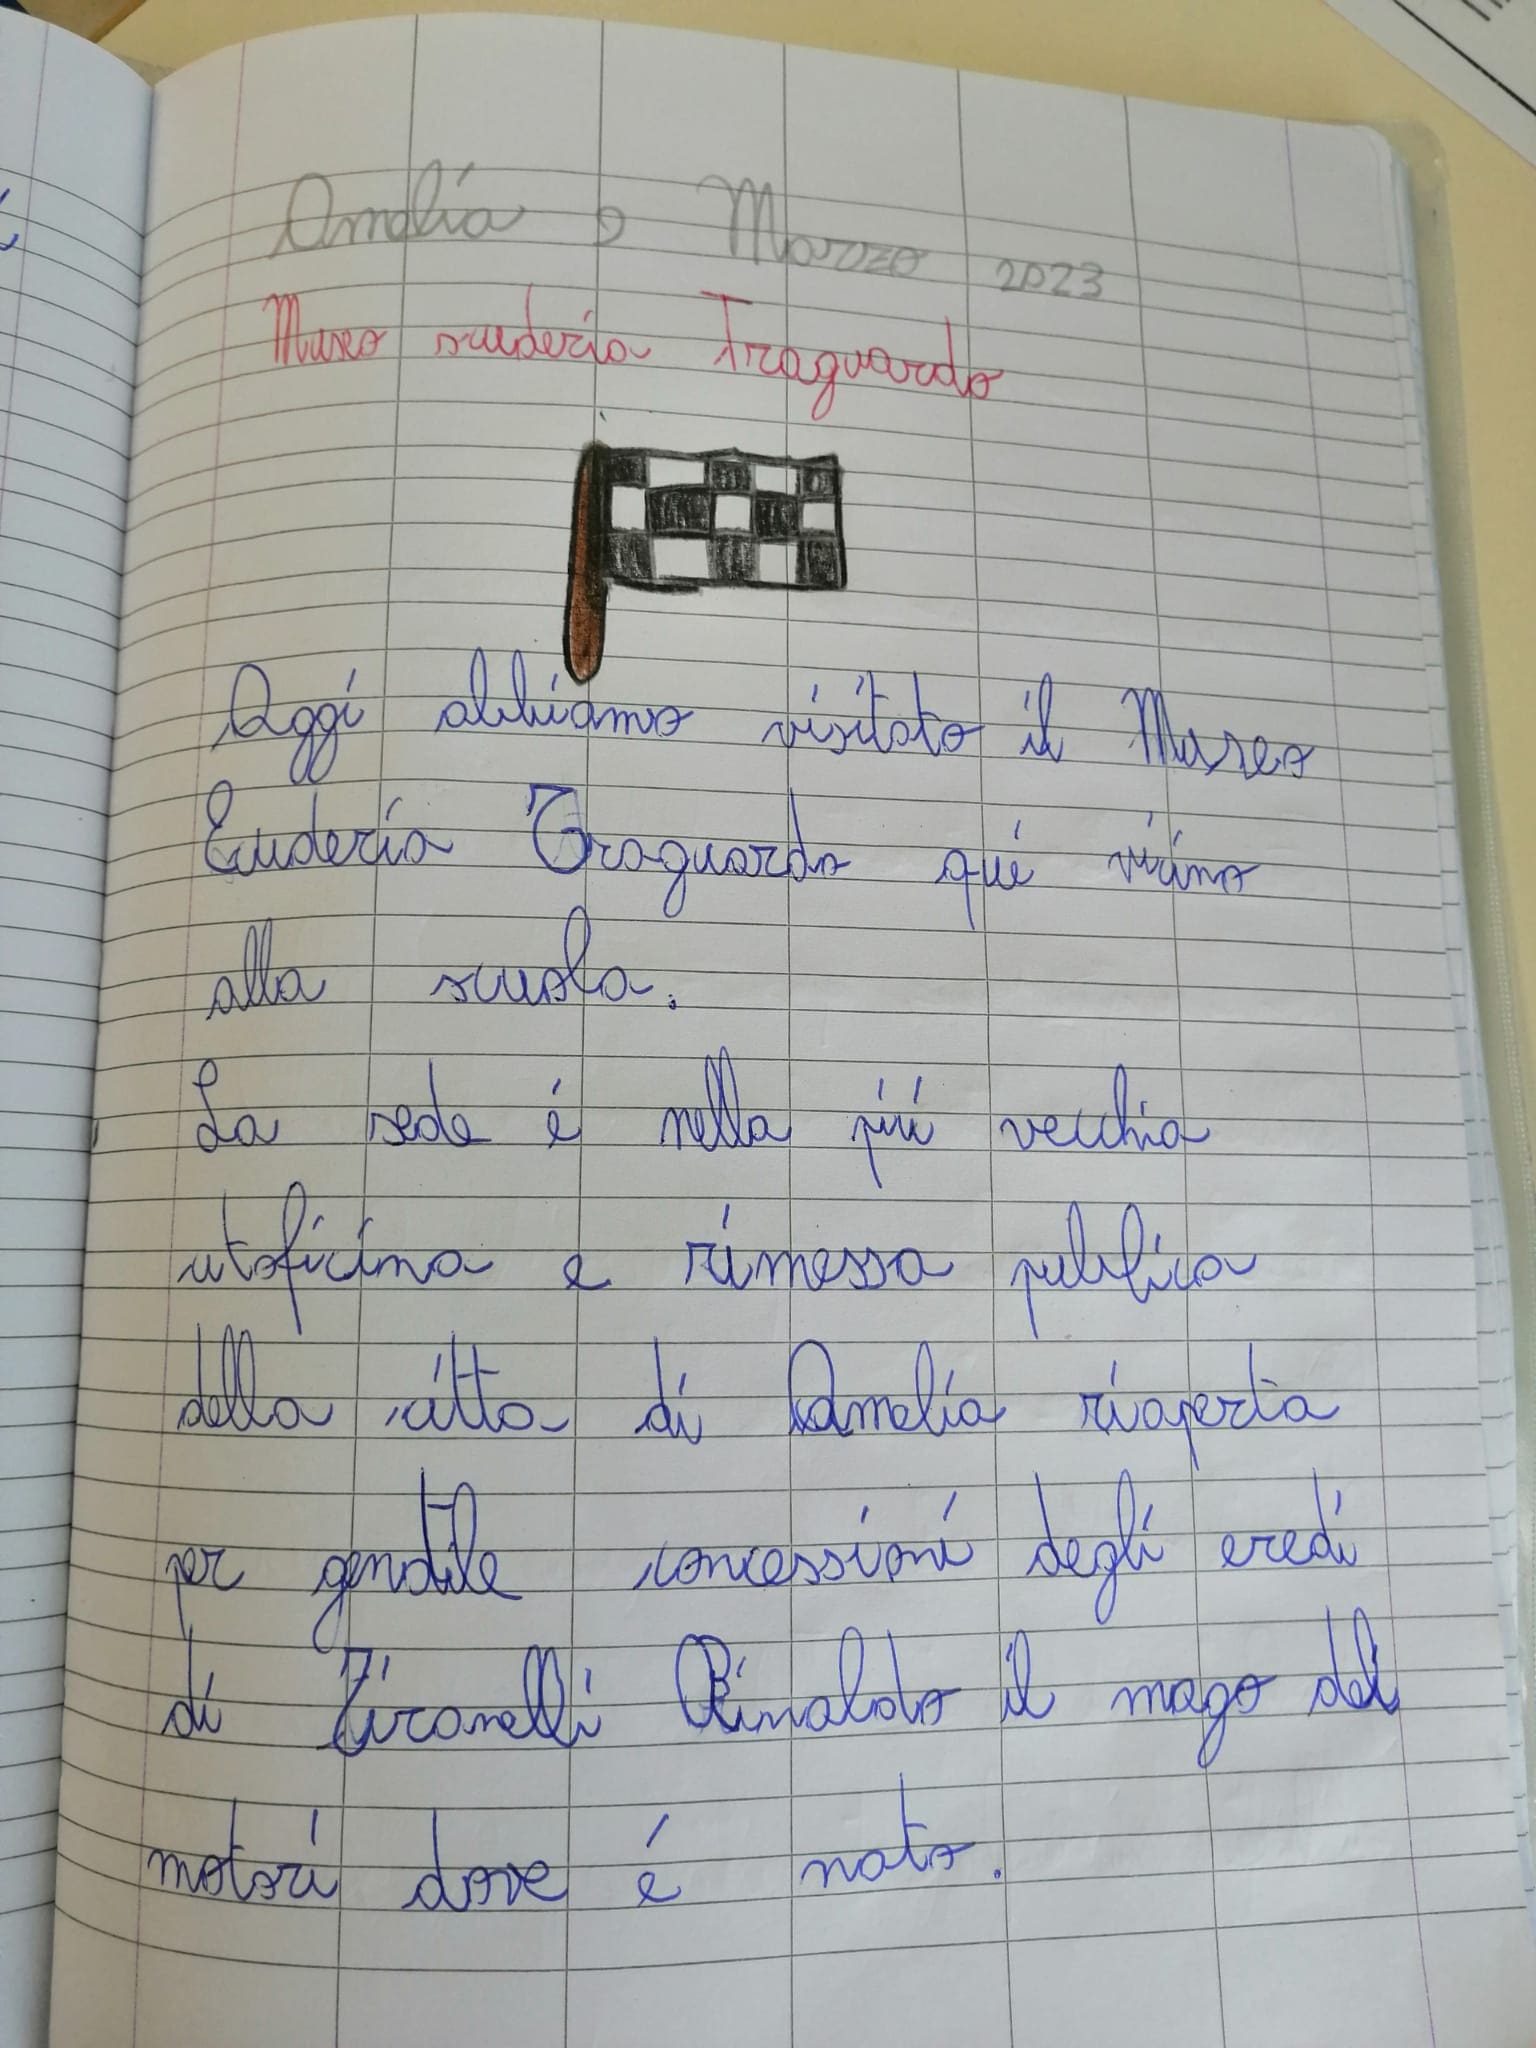 Amelia 9 Marzo 2023
Museo scuderia Traguardo
Oggi abbiamo visitato il Museo
Scuderia Traguardo qui vicino
alla scuola.
La sede é nella più vecchia
utoficina e rimessa publica
della citta di Amelia riaperta
per gendtile concessioni degli eredi
di Ziranelli Rinaldo il mago dei
motori dove é nato.